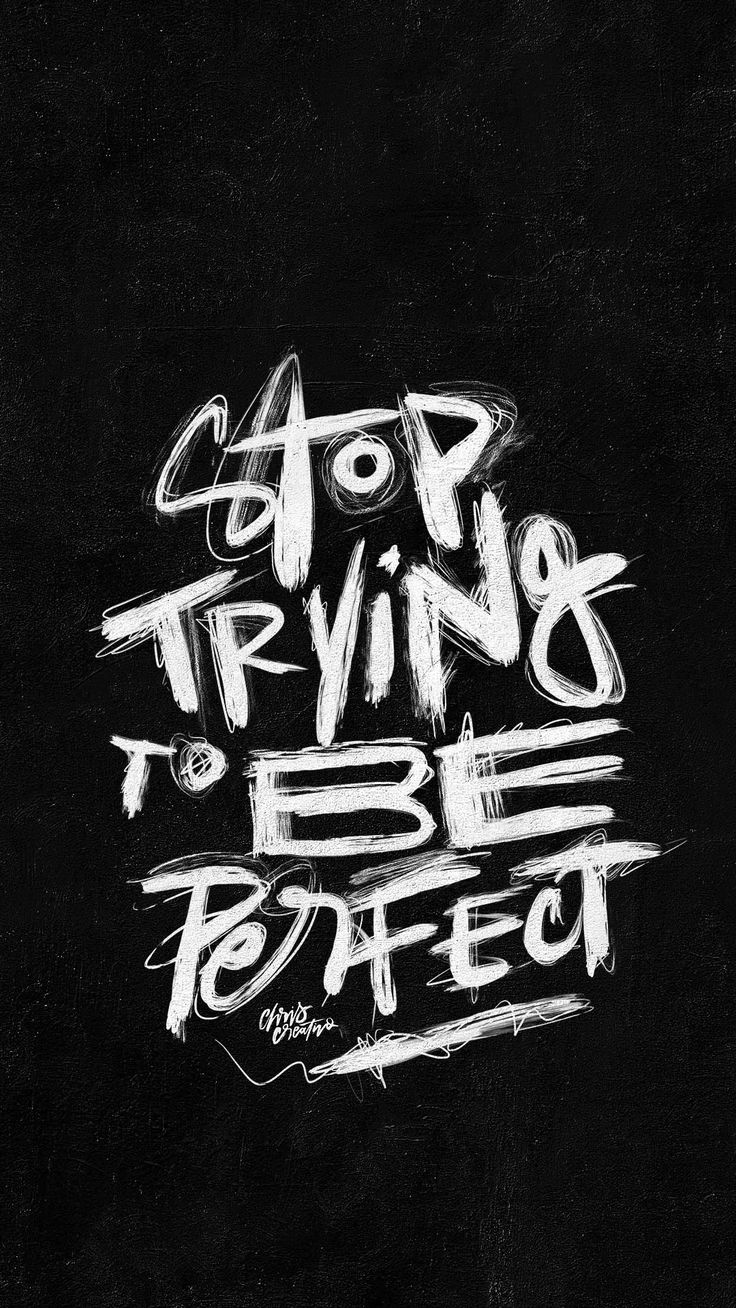 STOP
TRYiNg
TO BE
PerFECT
chris
creativo